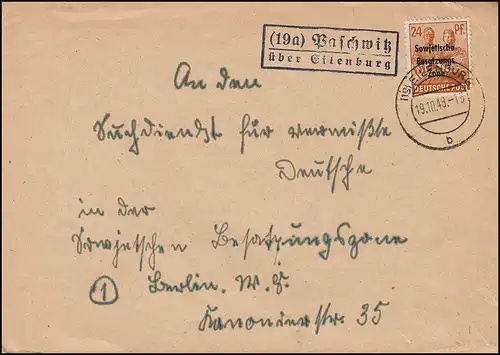 (19a) Paschwitz
über Eilenburg
24 PF.
Sowjetische
Besatzungs
Zone
DEUTSCHE POST
EILENBURG
19.10.48.-15
b
An den
Suchdienst für vermißte
Deutsche
in der
Sowjetschen Besatzungszone
1 Berlin. W. 8.
Kanonierstr. 35